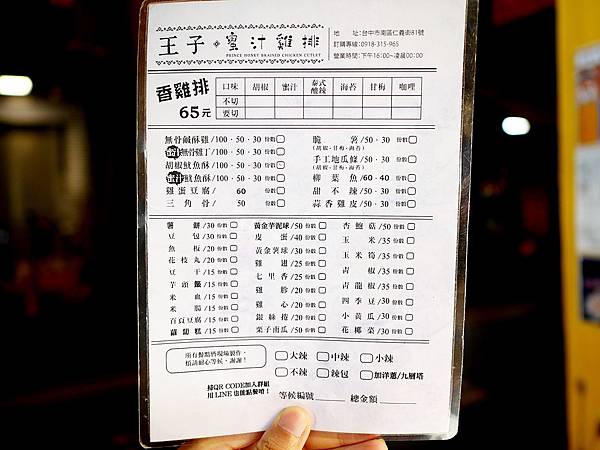 王子 蜜汁雞排
PRINCE HONEY BRAINED CHICKEN CUTLET
地 址:台中市南區仁義街81號
訂購專線:0918-315-965
營業時間:下午16:00~凌晨00:00
香雞排
65元
口味 胡椒 蜜汁 泰式酸辣 海苔 甘梅 咖哩
不切
要切
無骨鹹酥雞/100.50.30 份數
蜜汁無骨雞丁/100.50.30 份數
胡椒魷魚酥/100.50.30 份數
蜜汁魷魚酥/100.50.30 份數
雞蛋豆腐/ 60 份數
三角骨/ 50 份數
脆薯/50.30 份數
(胡椒.甘梅.海苔)
手工地瓜條/50.30 份數
(胡椒.甘梅.海苔)
柳葉魚/60.40 份數
甜不辣/50.30 份數
蒜香雞皮/50.30 份數
薯餅/30 份數
豆包/30 份數
魚板/20 份數
花枝丸/20 份數
豆干/15 份數
芋頭饅/15 份數
米血/15 份數
米腸/15 份數
百頁豆腐/15 份數
蘿蔔糕/15 份數
黃金芋泥球/50 份數
皮蛋/40 份數
黃金薯球/30 份數
雞翅/25 份數
七里香/25 份數
雞胗/20 份數
雞心/20 份數
銀絲捲/20 份數
栗子南瓜/50 份數
杏鮑菇/50 份數
玉米/35 份數
玉米筍/35 份數
青椒/35 份數
青龍椒/35 份數
四季豆/30 份數
小黃瓜/30 份數
花椰菜/30 份數
所有餐點皆現場製作,
煩請耐心等候,謝謝!
大辣 中辣 小辣
不辣 辣包 加洋蔥/九層塔
掃QR CODE加入群組
用LINE也能點餐喲!
等候編號 總金額